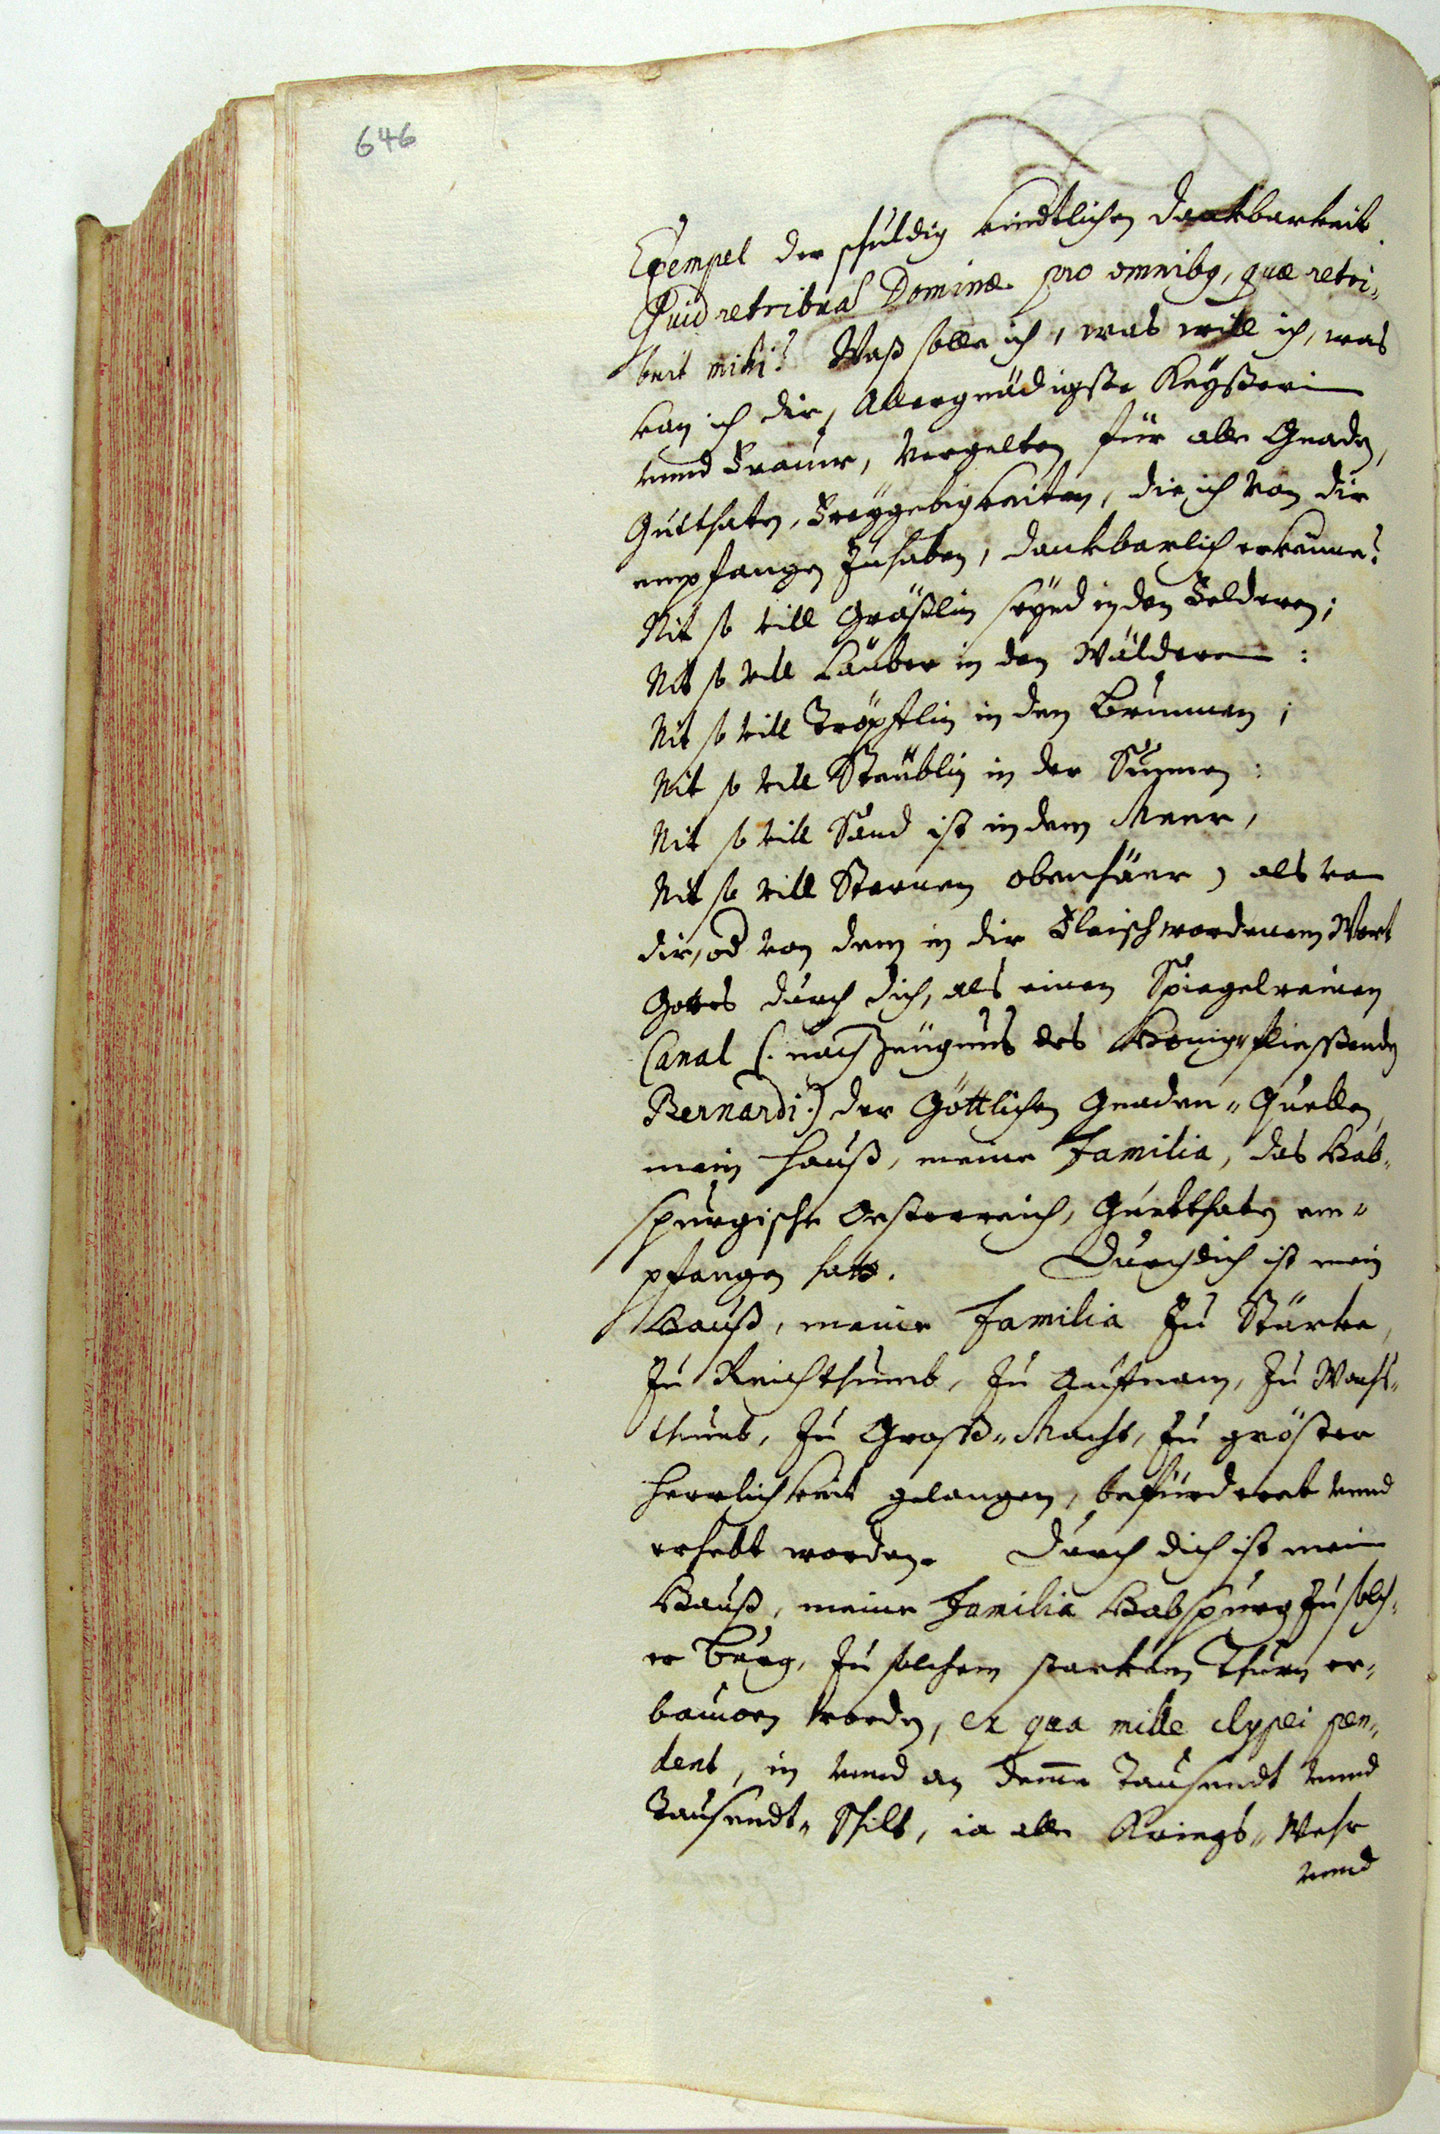 646
Exempel der schuldig kindtlichen Dankbarkeit.
Quid retribuas Dominæ pro omnibq, quæ retri-
buit mihi? Waß solle ich, was will ich, was
kan ich dir, Allergnädigste Keyßerin
vnnd Frauw, vergelten für alle Gnadn,
Gutthatn, Freÿgebigkeiten, die ich von dir
empfangen zuhaben, dankbarlich erkenne?
Nit so vill Gräßlin seÿnd in den Felderen;
Nit so vill Läuber in den Wälderen:
Nit so vill Tröpflin in den Brunnen;
Nit so vill Stäublin in der Sunnen:
Nit so vill Sand ist in dem Meer,
Nit so vill Sternen obenhäer, als von
dir, od von dem in dir Fleischwordenem Wort
Gottes durch dich, als einen Spiegelreinen
Canal (: nach Zeügnus des Honig-fliessenden
Bernardi:) der Göttlichen Gnaden-Quellen,
mein Hauß, meine Familia, das Hab-
spurgische Oesterreich, Guettthaten em-
pfangen hatt. Durch dich ist mein
Hauß, meine Familia zu Stärke,
zu Reichthumb, zu Aufnam, zu Wachs-
thumb, zu Groß-Macht, zu gröster
Herrlichkeit gelangen, befürderet vnnd
erhebt worden. Durch dich ist mein
Hauß, meine Familia Habspurg zu solch-
er Burg, zu solchem starkem Thurn er-
bauwen wordn, ex qua mille clypei pen-
dent, in vnnd an deme Tausendt vnnd
Tausendt-Schilt, ia alle Kriegs-Wehr
vnnd